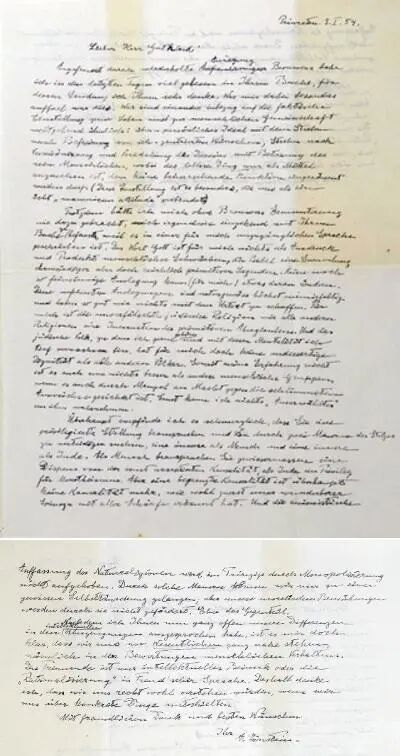 Princeton, 3. I. 54.
Lieber Herr Gutkind!
Angefeuert durch wiederholte Anregung Brouwers habe
ich in den letzten Tagen viel gelesen in Ihrem Buche, für
dessen Sendung ich Ihnen sehr danke. Was mir dabei besonders
auffiel war dies. Wir sind einander inbezug auf die faktische
Einstellung zum Leben und zur menschlichen Gemeinschaft
weitgehend ähnlich: persönliches Ideal mit dem Streben
nach Befreiung von ich-zentrierten Wünschen, Streben nach
Verschönerung und Veredelung des Daseins mit Betonung des
rein Menschlichen, wobei das leblose Ding nur als Mittel
anzusehen ist, dem keine beherrschende Funktion eingeräumt
werden darf. (Diese Einstellung ist es besonders, die uns als ein
echt "unamerican attitude" verbindet)
Trotzdem hätte ich mich ohne Brouwers Ermunterung
nie dazu gebracht, mich irgendwie eingehend mit Ihrem
Buche zu befassen, weil es in einer für mich unzugänglichen Sprache
geschrieben ist. Das Wort Gott ist für mich nichts als Ausdruck
und Produkt menschlicher Schwächen, die Bibel eine Sammlung
ehrwürdiger aber doch reichlich primitiver Legenden. Keine noch
so feinsinnige Auslegung kann (für mich) etwas daran ändern.
Diese verfeinerten Auslegungen sind naturgemäss höchst mannigfaltig
und haben so gut wie nichts mit dem Urtext zu schaffen. Für
mich ist die unverfälschte jüdische Religion wie alle anderen
Religionen eine Incarnation des primitiven Aberglaubens. Und das
jüdische Volk, zu dem ich gerne gehöre und mit dessen Mentalität ich
tief verwachsen bin, hat für mich doch keine andersartige
Dignität als alle anderen Völker. Soweit meine Erfahrung reicht
ist es auch um nichts besser als andere menschliche Gruppen
wenn es auch durch Mangel an Macht gegen die schlimmsten
Auswüchse gesichert ist. Sonst kann ich nichts "Auserwähltes"
an ihm wahrnehmen.
Überhaupt empfinde ich es schmerzlich, dass Sie eine
privilegierte Stellung beanspruchen und sie durch zwei Mauern des Stolzes
zu verteidigen suchen, eine äussere als Mensch und eine innere
als Jude. Als Mensch beanspruchen Sie gewissermassen einen
Dispens von der sonst acceptierten Kausalität, als Jude ein Privileg
für Monotheismus. Aber eine begrenzte Kausalität ist überhaupt
keine Kausalität mehr, wie wohl zuerst unser wunderbarer
Spinoza mit aller Schärfe erkannt hat. Und die animistische
Auffassung der Naturreligionen wird im Prinzip durch Monopolisierung
nicht aufgehoben. Durch solche Mauern können wir nur zu einer
gewissen Selbsttäuschung gelangen, aber unsere moralischen Bemühungen
werden durch sie nicht gefördert. Eher das Gegenteil.
Nachdem ich Ihnen nun ganz offen unsere Differenzen
in den intellektuellen Überzeugungen ausgesprochen habe, ist es mir doch
klar, dass wir uns im Wesentlichen ganz nahe stehen,
nämlich in den Bewertungen menschlichen Verhaltens.
Das Trennende ist nur intellektuelles Beiwerk oder die
"Rationalisierung" in Freud'scher Sprache. Deshalb denke
ich, dass wir uns recht wohl verstehen würden, wenn wir
uns über konkrete Dinge unterhielten.
Mit freundlichem Dank und besten Wünschen
Ihr
A. Einstein.